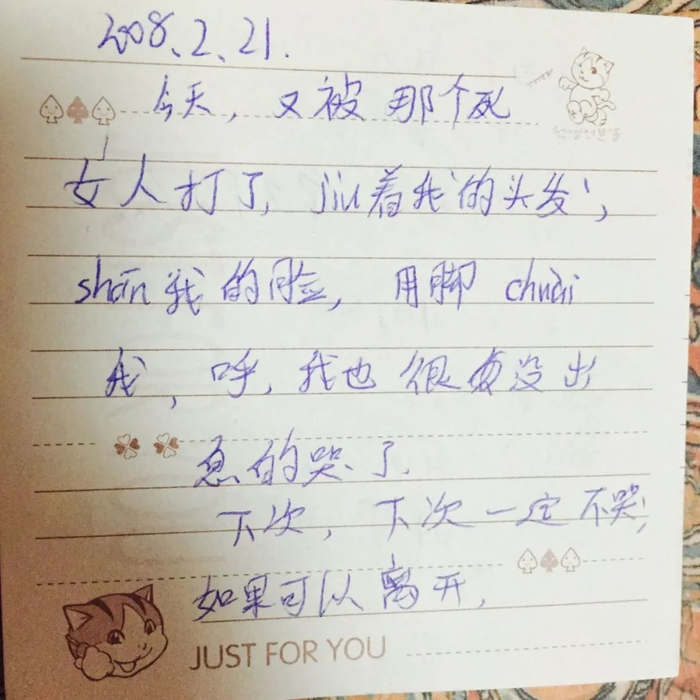 2008.2.21.
今天,又被那个死
女人打了,jiū着我的头发,
shān我的脸,用脚 chuài
我,呼,我也很没出
息的哭了.
下次,下次一定不哭,
如果可以离开,
JUST FOR YOU